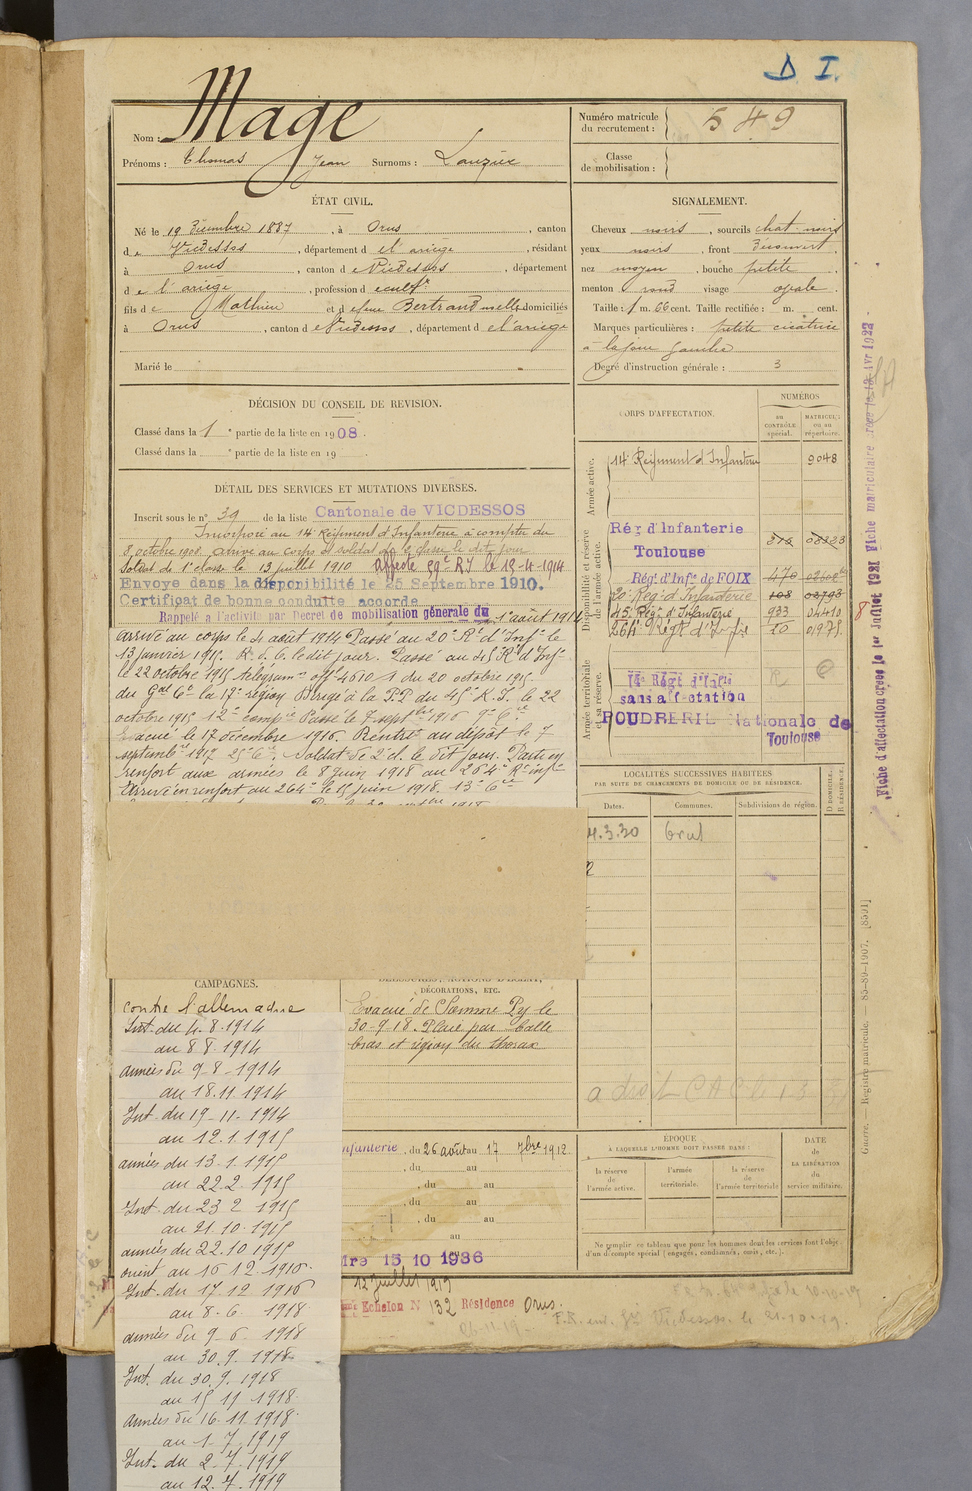 D I.
Nom : Mage
Prénoms : Thomas Jean Surnoms : Lauzue
Numéro matricule du recrutement : 549
Classe de mobilisation :
ÉTAT CIVIL.
Né le 19 Décembre 1887, à Orus, canton
de Vicdessos, département de l'ariège, résidant
à Orus, canton de Vicdessos, département
de l'ariège, profession de cultr
fils de Mathieu et de feue Bertrand domiciliés
à Orus, canton de Vicdessos, département de l'ariege
Marié le
SIGNALEMENT.
Cheveux noirs, sourcils chat-noirs
yeux noirs, front Découvert,
nez moyen, bouche petite
menton rond visage ovale.
Taille : 1 m. 66 cent. Taille rectifiée : m. cent.
Marques particulières : petite cicatrice
à la joue gauche
Degré d'instruction générale : 3
DÉCISION DU CONSEIL DE REVISION.
Classé dans la 1e partie de la liste en 1908.
Classé dans la partie de la liste en 19
DÉTAIL DES SERVICES ET MUTATIONS DIVERSES.
Inscrit sous le n° 39 de la liste Cantonale de VICDESSOS
Incorporé au 14e Régiment d'Infanterie à compter du
8 octobre 1908. arrivé au corps et soldat de 2e classe le dit jour
Soldat de 1e classe le 13 juillet 1910 affecté 59e RI le 15-4-1914
Envoyé dans la disponibilité le 25 Septembre 1910.
Certificat de bonne conduite accordé
Rappelé a l'activité par Decret de mobilisation génerale du 1er août 1914
arrivé au corps le 4 août 1914 Passé au 20e Rt d'Inf. le
13 janvier 1915. le dit jour. Passé au 45 Rt d'Inf.
le 22 octobre 1915 télégramme offel 4610/1 du 20 octobre 1915
du Gal Ct la 17e région Dirigé à la P.P du 45e R.I. le 22
octobre 1915 12e compie Passé le 7 septbre 1916 9e Cie
Evacué le 17 décembre 1916. Rentré au dépôt le 7
septembre 1917 25e Cie. Soldat de 2e cl. le dit jour. Parti en
renfort aux armées le 8 juin 1918 au 264e Rt infie
Arrivé en renfort au 264e le 15 juin 1918. 13e Cie
CORPS D'AFFECTATION.
NUMÉROS
au CONTRÔLE spécial.
MATRICULE ou au répertoire.
Armée active.
14e Régiment d'Infanterie 9048
Disponibilité et réserve de l'armée active.
Rég d'Infanterie
Toulouse
Régt d'Infie de FOIX 470
20e Rég d'Infanterie 108 03793
45e Régt d'Infanterie 933 04410
264e Régt d'Infie 10 01975
Armée territoriale et sa réserve.
14e Régt d'Infie
sans affectation
POUDRERIE Nationale de
Toulouse
LOCALITÉS SUCCESSIVES HABITÉES
PAR SUITE DE CHANGEMENTS DE DOMICILE OU DE RÉSIDENCE.
Dates. Communes. Subdivisions de région. D DOMICILE. R RÉSIDENCE.
4.3.30
CAMPAGNES.
contre l'allemagne
Int. du 4.8.1914
au 8 8.1914
armées du 9-8-1914
au 18.11.1914
Int. du 19-11-1914
au 12.1.1915
armées du 13.1.1915
au 22.2.1915
Int. du 23 2 1915
au 21.10.1915
armées du 22.10 1915
orient au 16 12.1916.
Int. du 17.12 1916
au 8-6. 1918
armées du 9-6. 1918
au 30.9.1918
Int. du 30.9.1918
au 15 11 1918
armées du 16.11.1918
au 1.7.1919
Int. du 2.7.1919
au 12.7.1919
BLESSURES, ACTIONS D'ÉCLAT,
DÉCORATIONS, ETC.
Evacué de Somme Py le
30-9-18. Plaie par balle
bras et région du thorax
nfanterie, du 26 août au 17 7bre 1912.
, du au
, du au
, du au
, du au
au
au
15 10 1936
12 juillet 1919
Echelon N° 132 Résidence Orus.
ÉPOQUE
À LAQUELLE L'HOMME DOIT PASSER DANS :
la réserve de l'armée active.
l'armée territoriale.
la réserve de l'armée territoriale
DATE de LA LIBÉRATION du service militaire.
Ne remplir ce tableau que pour les hommes dont les services font l'objet
d'un décompte spécial (engagés, condamnés, omis, etc.).
a droit CAC le 13
Fiche d'affectation créée le 1er Juillet 1921 Fiche matriculaire créée le 12 Avr 1922
8
Guerre. — Registre matricule. — 85-89-1907. [8591]